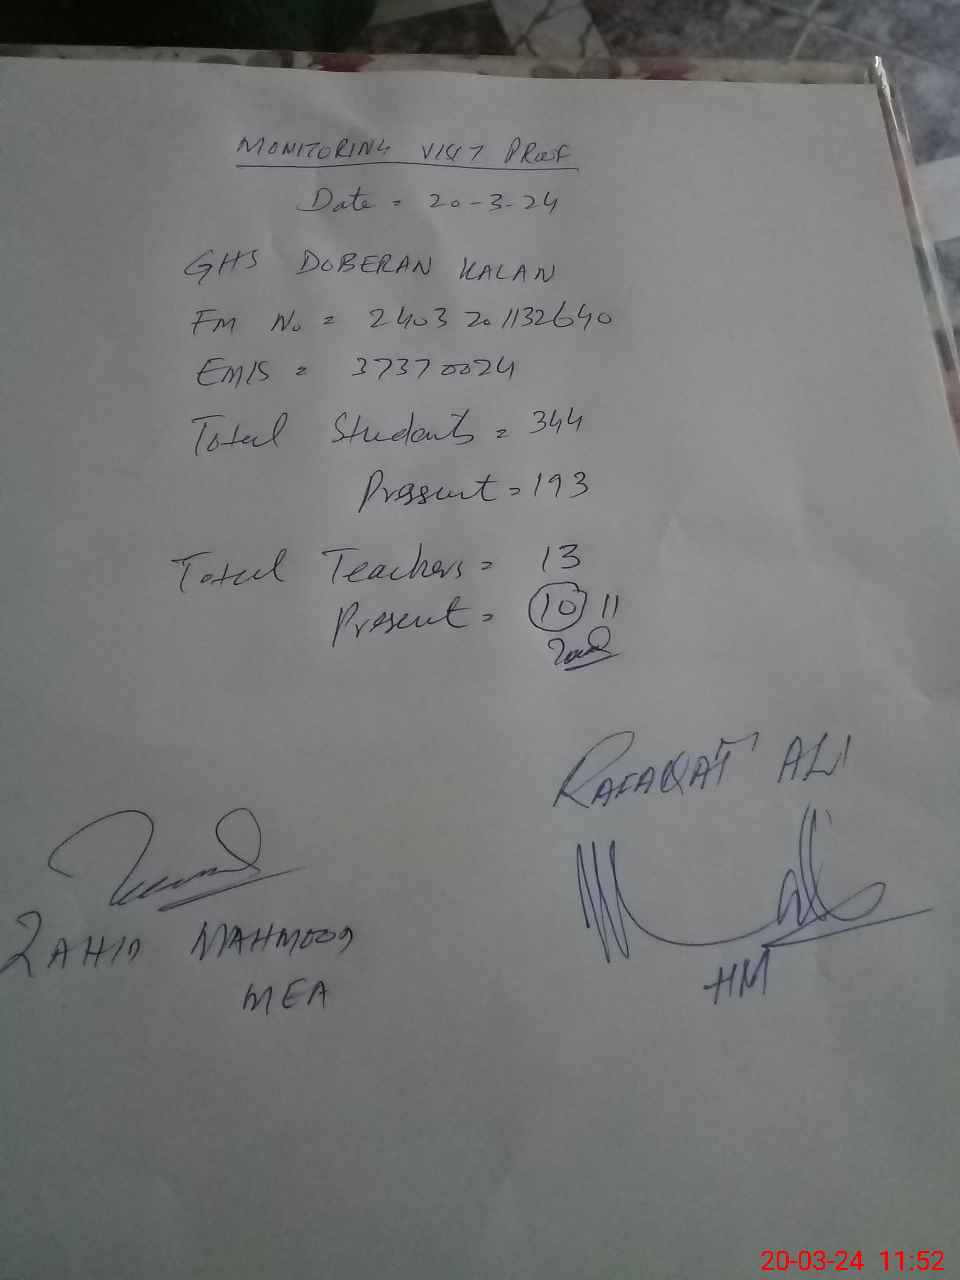 MONITORING VISIT PROOF
Date = 20-3-24
GHS DOBERAN KALAN
FM No = 2403201132640
EMIS = 37370024
Total Students = 344
Present = 193
Total Teachers = 13
Present = 10 11
RAFAQAT ALI
ZAHID MAHMOOD
MEA
HM
20-03-24 11:52